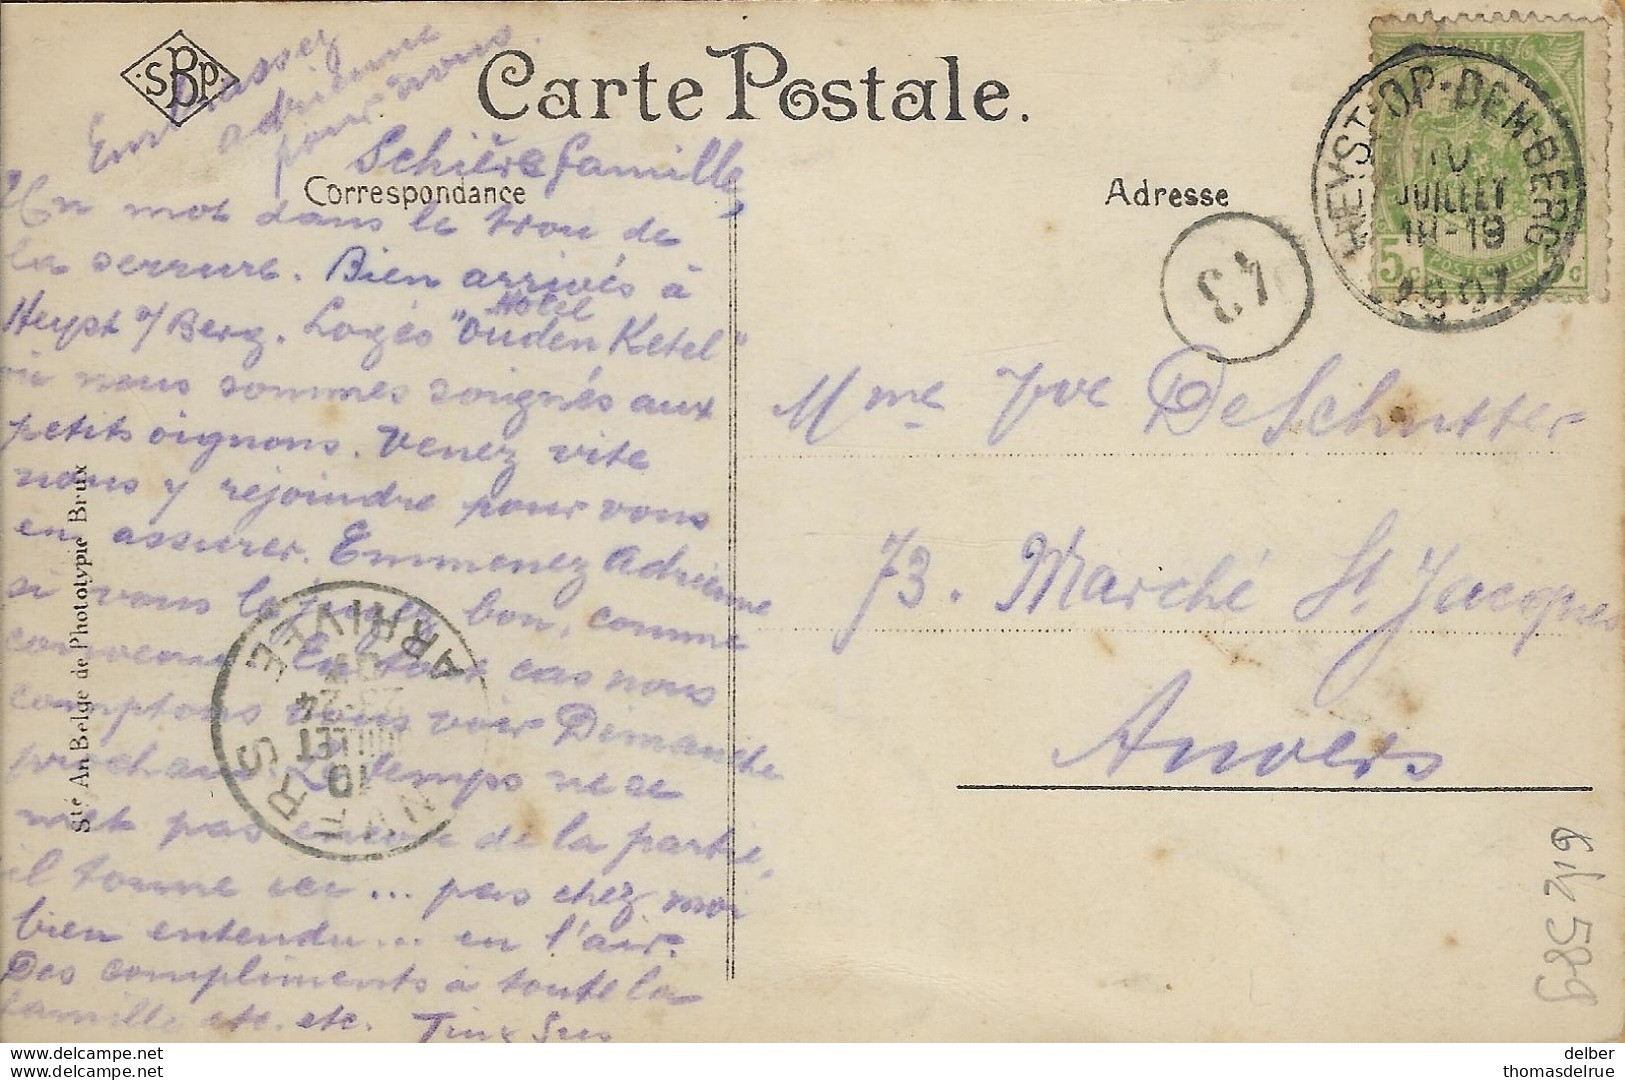 SBP
Carte Postale.
Embrassez
adrienne
pour nous.
Correspondance
Adresse
HEYST-OP-DEN-BERG
10
JUILLET
18-19
1907
5c 5c
43
Schière famille,
Un mot dans le trou de
la serrure. Bien arrivés à
Heyst o/Berg. Logés "Hôtel Ouden Ketel"
où nous sommes soignés aux
petits oignons. Venez vite
nous y rejoindre pour vous
en assurer. Emmenez Adrienne
si vous le jugez bon, comme
convenu. En tout cas nous
comptons vous voir Dimanche
prochain. Le temps ne se
met pas encore de la partie,
il tonne ici ... pas chez moi
bien entendu... en l'air.
Des compliments à toute la
famille etc. etc. Tin
Mme Vve DeSchutter
73. Marché St. Jacques
Anvers
ARRIVEE
10
JUILLET
ANVERS
Sté An Belge de Phototypie Brux
612 589
www.delcampe.net
www.delcampe.net
delber
thomasdelrue